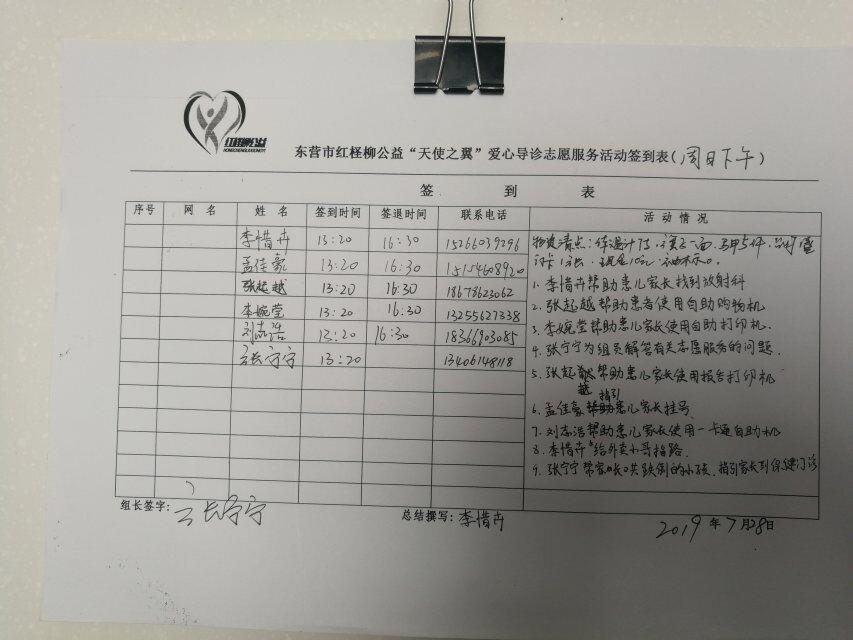 红柽柳公益
东营市红柽柳公益“天使之翼”爱心导诊志愿服务活动签到表(周日下午)
签 到 表
序号 网 名 姓 名 签到时间 签退时间 联系电话 活 动 情 况
李惜卉 13:20 16:30 15266039296
孟佳豪 13:20 16:30 15154608920
张起越 13:20 16:30 18678623062
李婉莹 13:20 16:30 13255627338
刘志浩 13:20 16:30 18366903085
张宁宁 13:20 13406148118
物资清点:体温计
1. 李惜卉帮助患儿家长找到放射科
2. 张起越帮助患者使用自助购物机
3. 李婉莹帮助患儿家长使用自助打印机.
4. 张宁宁为组员解答有关志愿服务的问题.
5. 张起越帮助患儿家长使用报告打印机
6. 孟佳豪指引患儿家长挂号
7. 刘志浩帮助患儿家长使用一卡通自助机
8. 李惜卉给外卖小哥指路.
9. 张宁宁帮家长哄跌倒的小孩,指引家长到保健门诊
组长签字: 张宁宁 总结撰写: 李惜卉 2019年7月28日